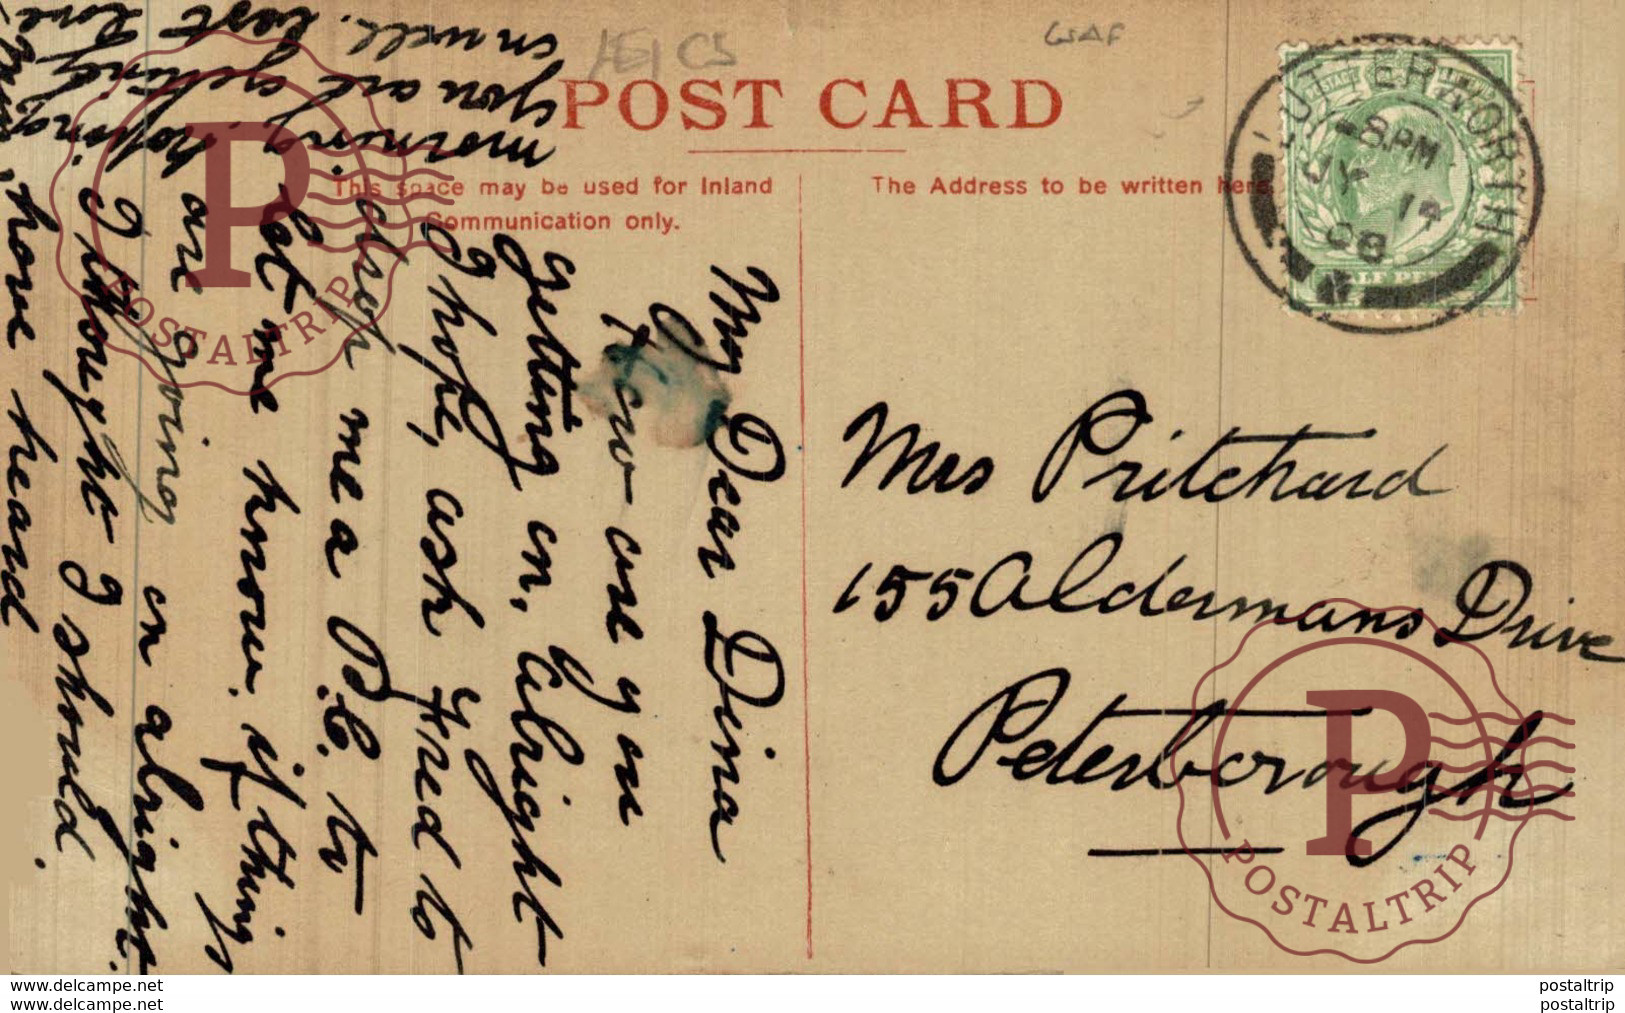 POST CARD
This space may be used for Inland
Communication only.
The Address to be written here
LUTTERWORTH
8 PM
JY 14
08
HALF PENNY
LEICS
Mrs Pritchard
155 Aldermans Drive
Peterborough
My Dear Dina
How are you
getting on, alright
I hope, ask Fred to
drop me a P.C. to
let me know if things
are going on alright.
I thought I should
have heard
this
morning, hoping
you are getting
on well. best love
POSTALTRIP
POSTALTRIP
www.delcampe.net
www.delcampe.net
postaltrip
postaltrip